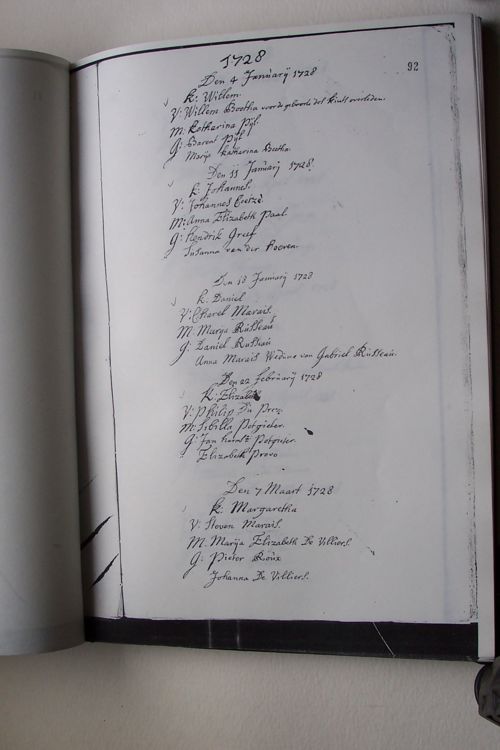 1728
92
Den 4 Januarij 1728
K: Willem.
V: Willem Bootha voor de geboorte des kints overleden.
M: Katharina Pijl
G: Barent Pijl
Marija Katharina Bootha.
Den 11 Januarij 1728.
K: Johannes.
V: Johannes Coetzè
M: Anna Elizabeth Paal
G: Hendrik Greef
Susanna van der Poeven.
Den 18 Januarij 1728
K. Daniel
V: Charel Marais.
M: Marga Rússeaú
G: Daniel Russeau
Anna Marais Weduwe van Gabriel Rússeau.
Den 22 februarij 1728
K: Elizabeth
V: Philip Du Prez
M: Sibilla Potgieter.
G: Jan Potgieter.
Elizabeth Provo
Den 7 Maart 1728
K. Margaretha
V: Steven Marais.
M. Marija Elizabeth De Villiers.
G: Pieter Roúx
Johanna De Villiers.